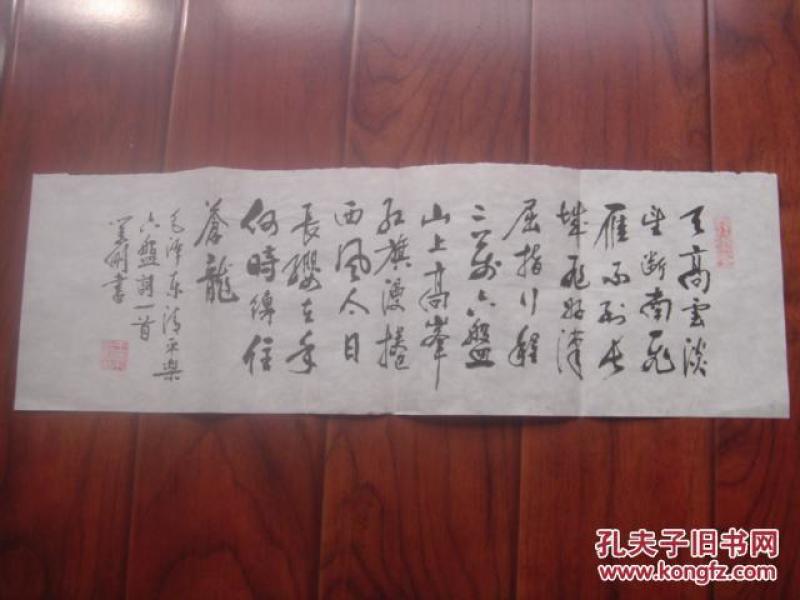 天高雲淡
望断南飛
雁不到长
城非好漢
屈指行程
二萬六盤
山上高峰
紅旗漫捲
西風今日
長纓在手
何時縛住
蒼龍
毛澤東清平樂
六盤詞一首
書
孔夫子旧书网
www.kongfz.com